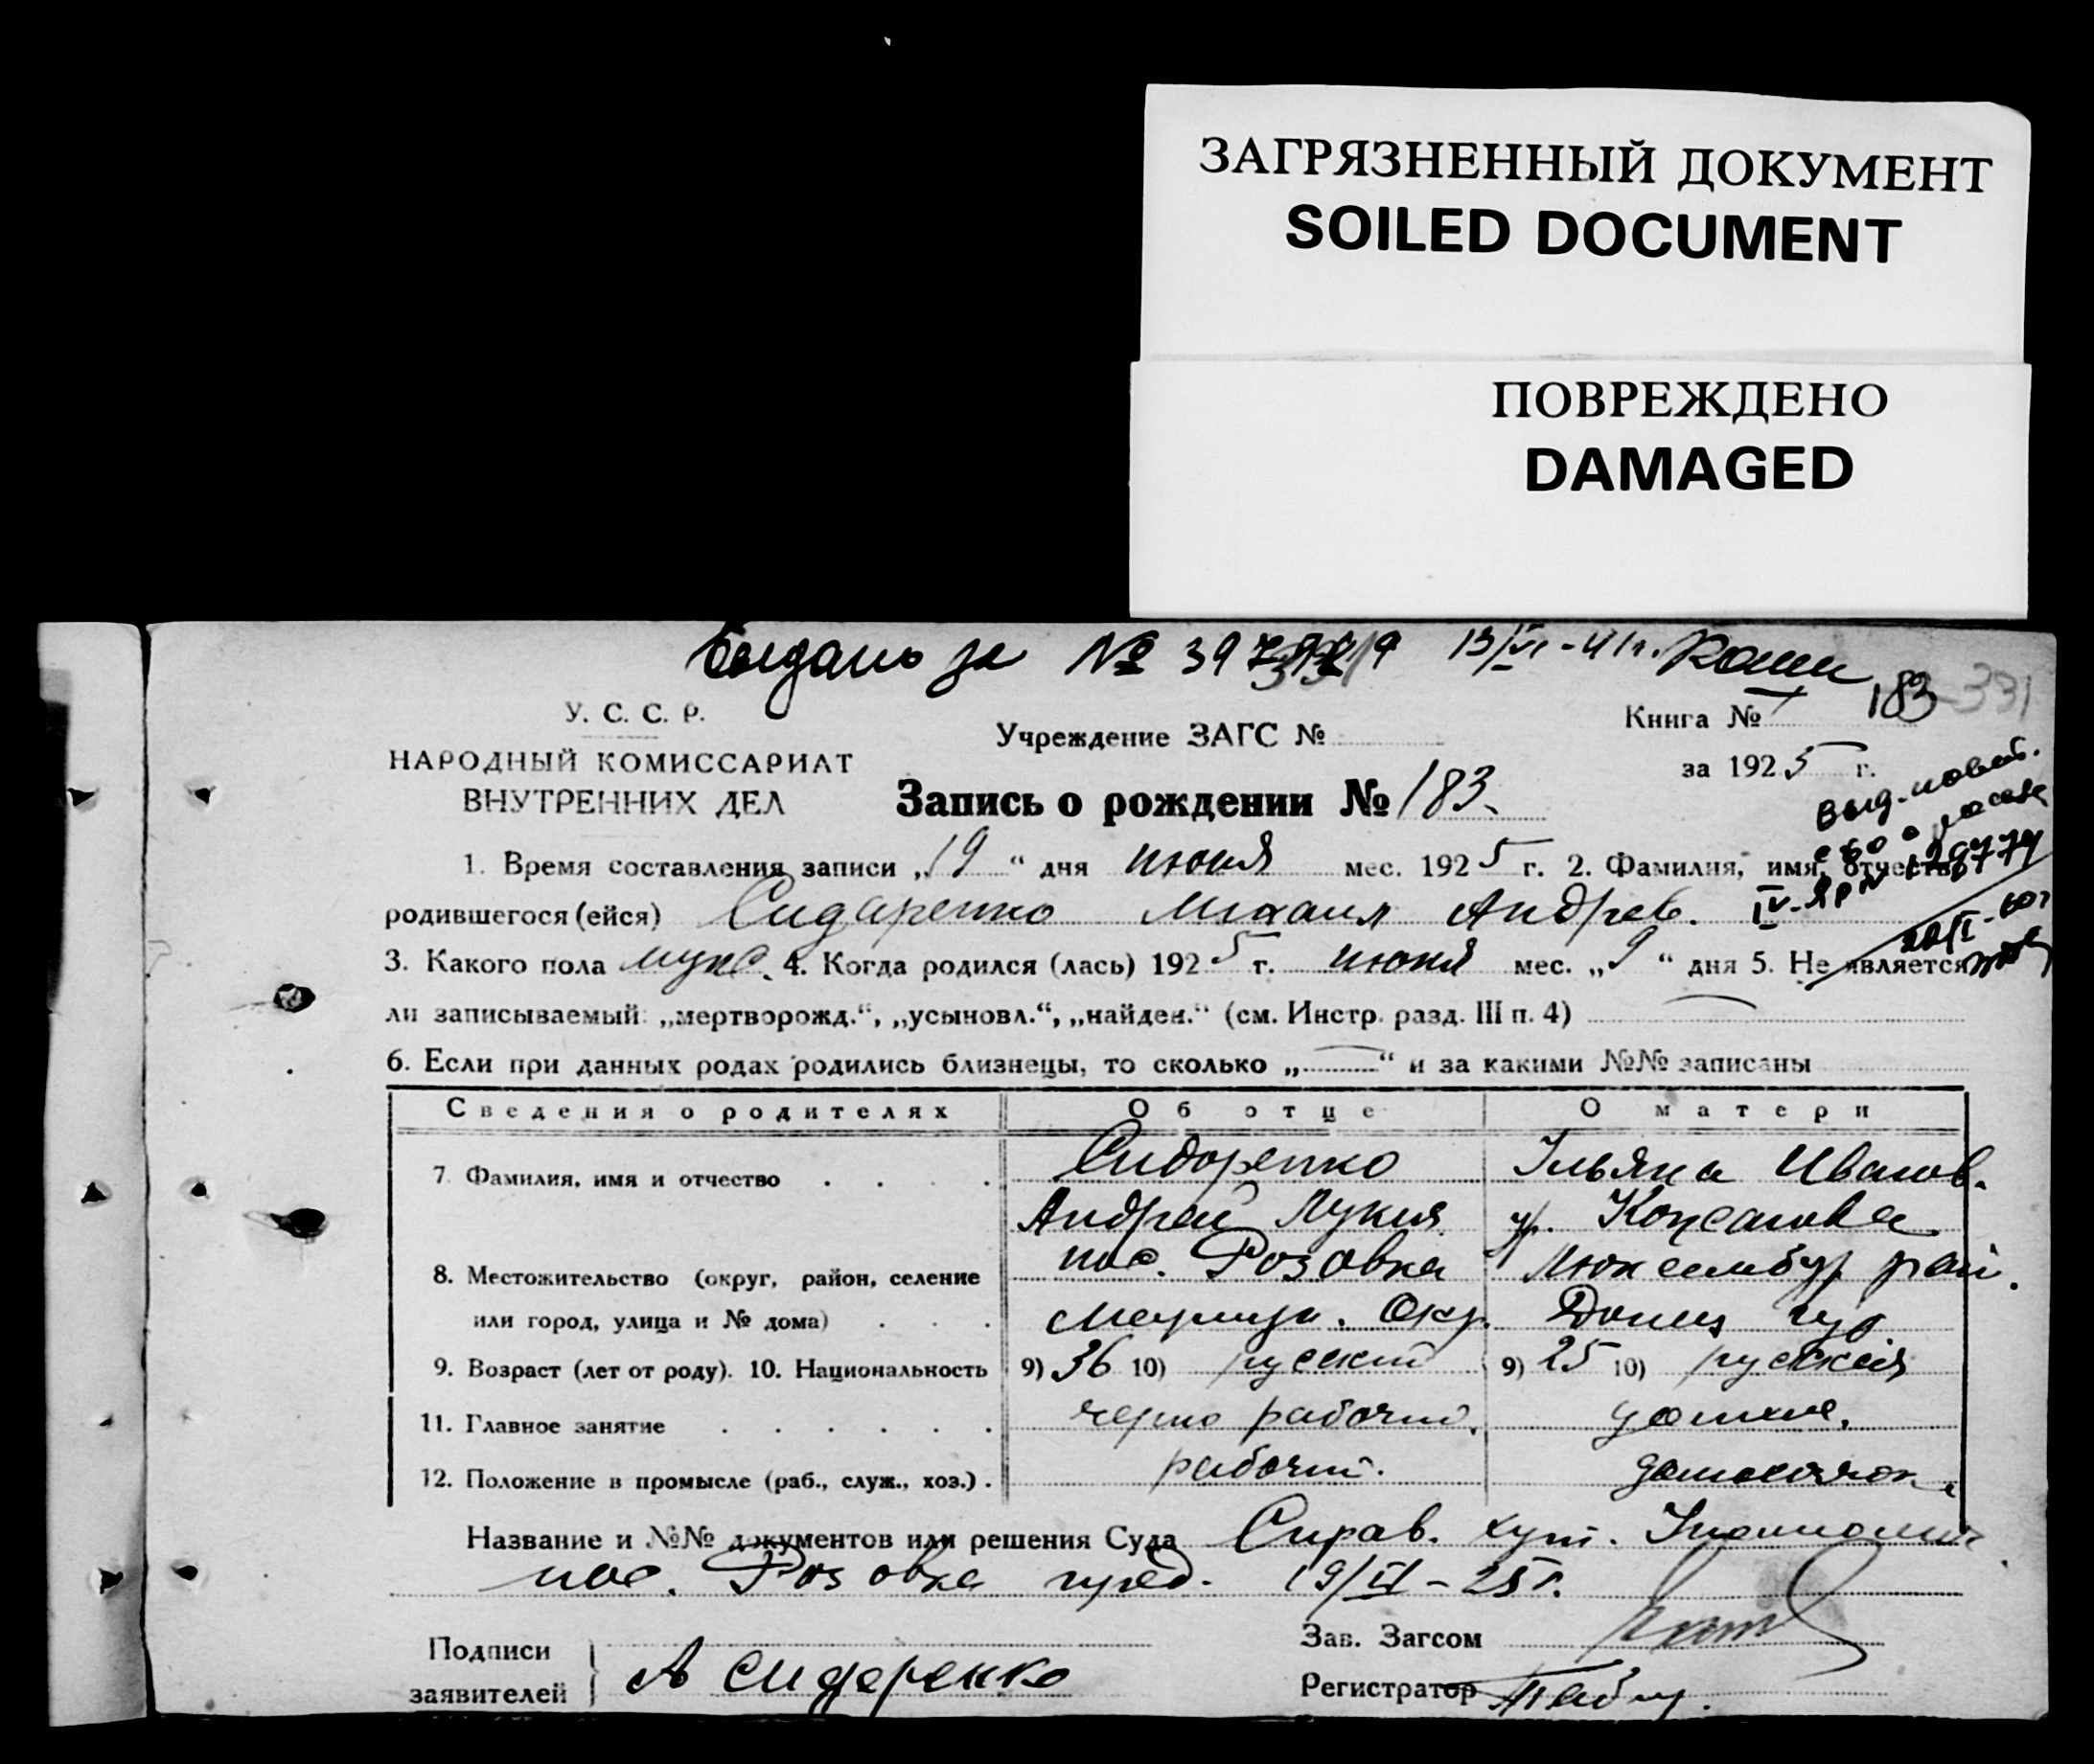 ЗАГРЯЗНЕННЫЙ ДОКУМЕНТ
SOILED DOCUMENT
ПОВРЕЖДЕНО
DAMAGED
Выдано за № 13/VI-41г.
У. С. С. Р.
НАРОДНЫЙ КОМИССАРИАТ
ВНУТРЕННИХ ДЕЛ
Учреждение ЗАГС №
Книга № 183 331
за 1925 г.
Запись о рождении № 183
Выд. повт.
1. Время составления записи „19“ дня июня мес. 1925 г. 2. Фамилия, имя, отчество
родившегося (ейся) Сидаренко Михаил Андрев.
3. Какого пола муж. 4. Когда родился (лась) 1925 г. июня мес. „9“ дня 5. Не является
ли записываемый: „мертворожд.“, „усыновл.“, „найден.“ (см. Инстр. разд. III п. 4)
6. Если при данных родах родились близнецы, то сколько „—“ и за какими №№ записаны
Сведения о родителях Об отце О матери
7. Фамилия, имя и отчество Сидоренко Ульяна Иванов.
Андрей Лукич ур.
8. Местожительство (округ, район, селение пос. Розовка Люксембур. рай.
или город, улица и № дома) Мариуп. Окр. Донец губ.
9. Возраст (лет от роду). 10. Национальность 9) 36 10) русский 9) 25 10) русская
11. Главное занятие черно рабочий.
12. Положение в промысле (раб., служ., хоз.) рабочий. домохозяж.
Название и №№ документов или решения Суда Справ.
пос. Розовка 19/VI-25 г.
Подписи
заявителей А Сидоренко
Зав. Загсом
Регистратор